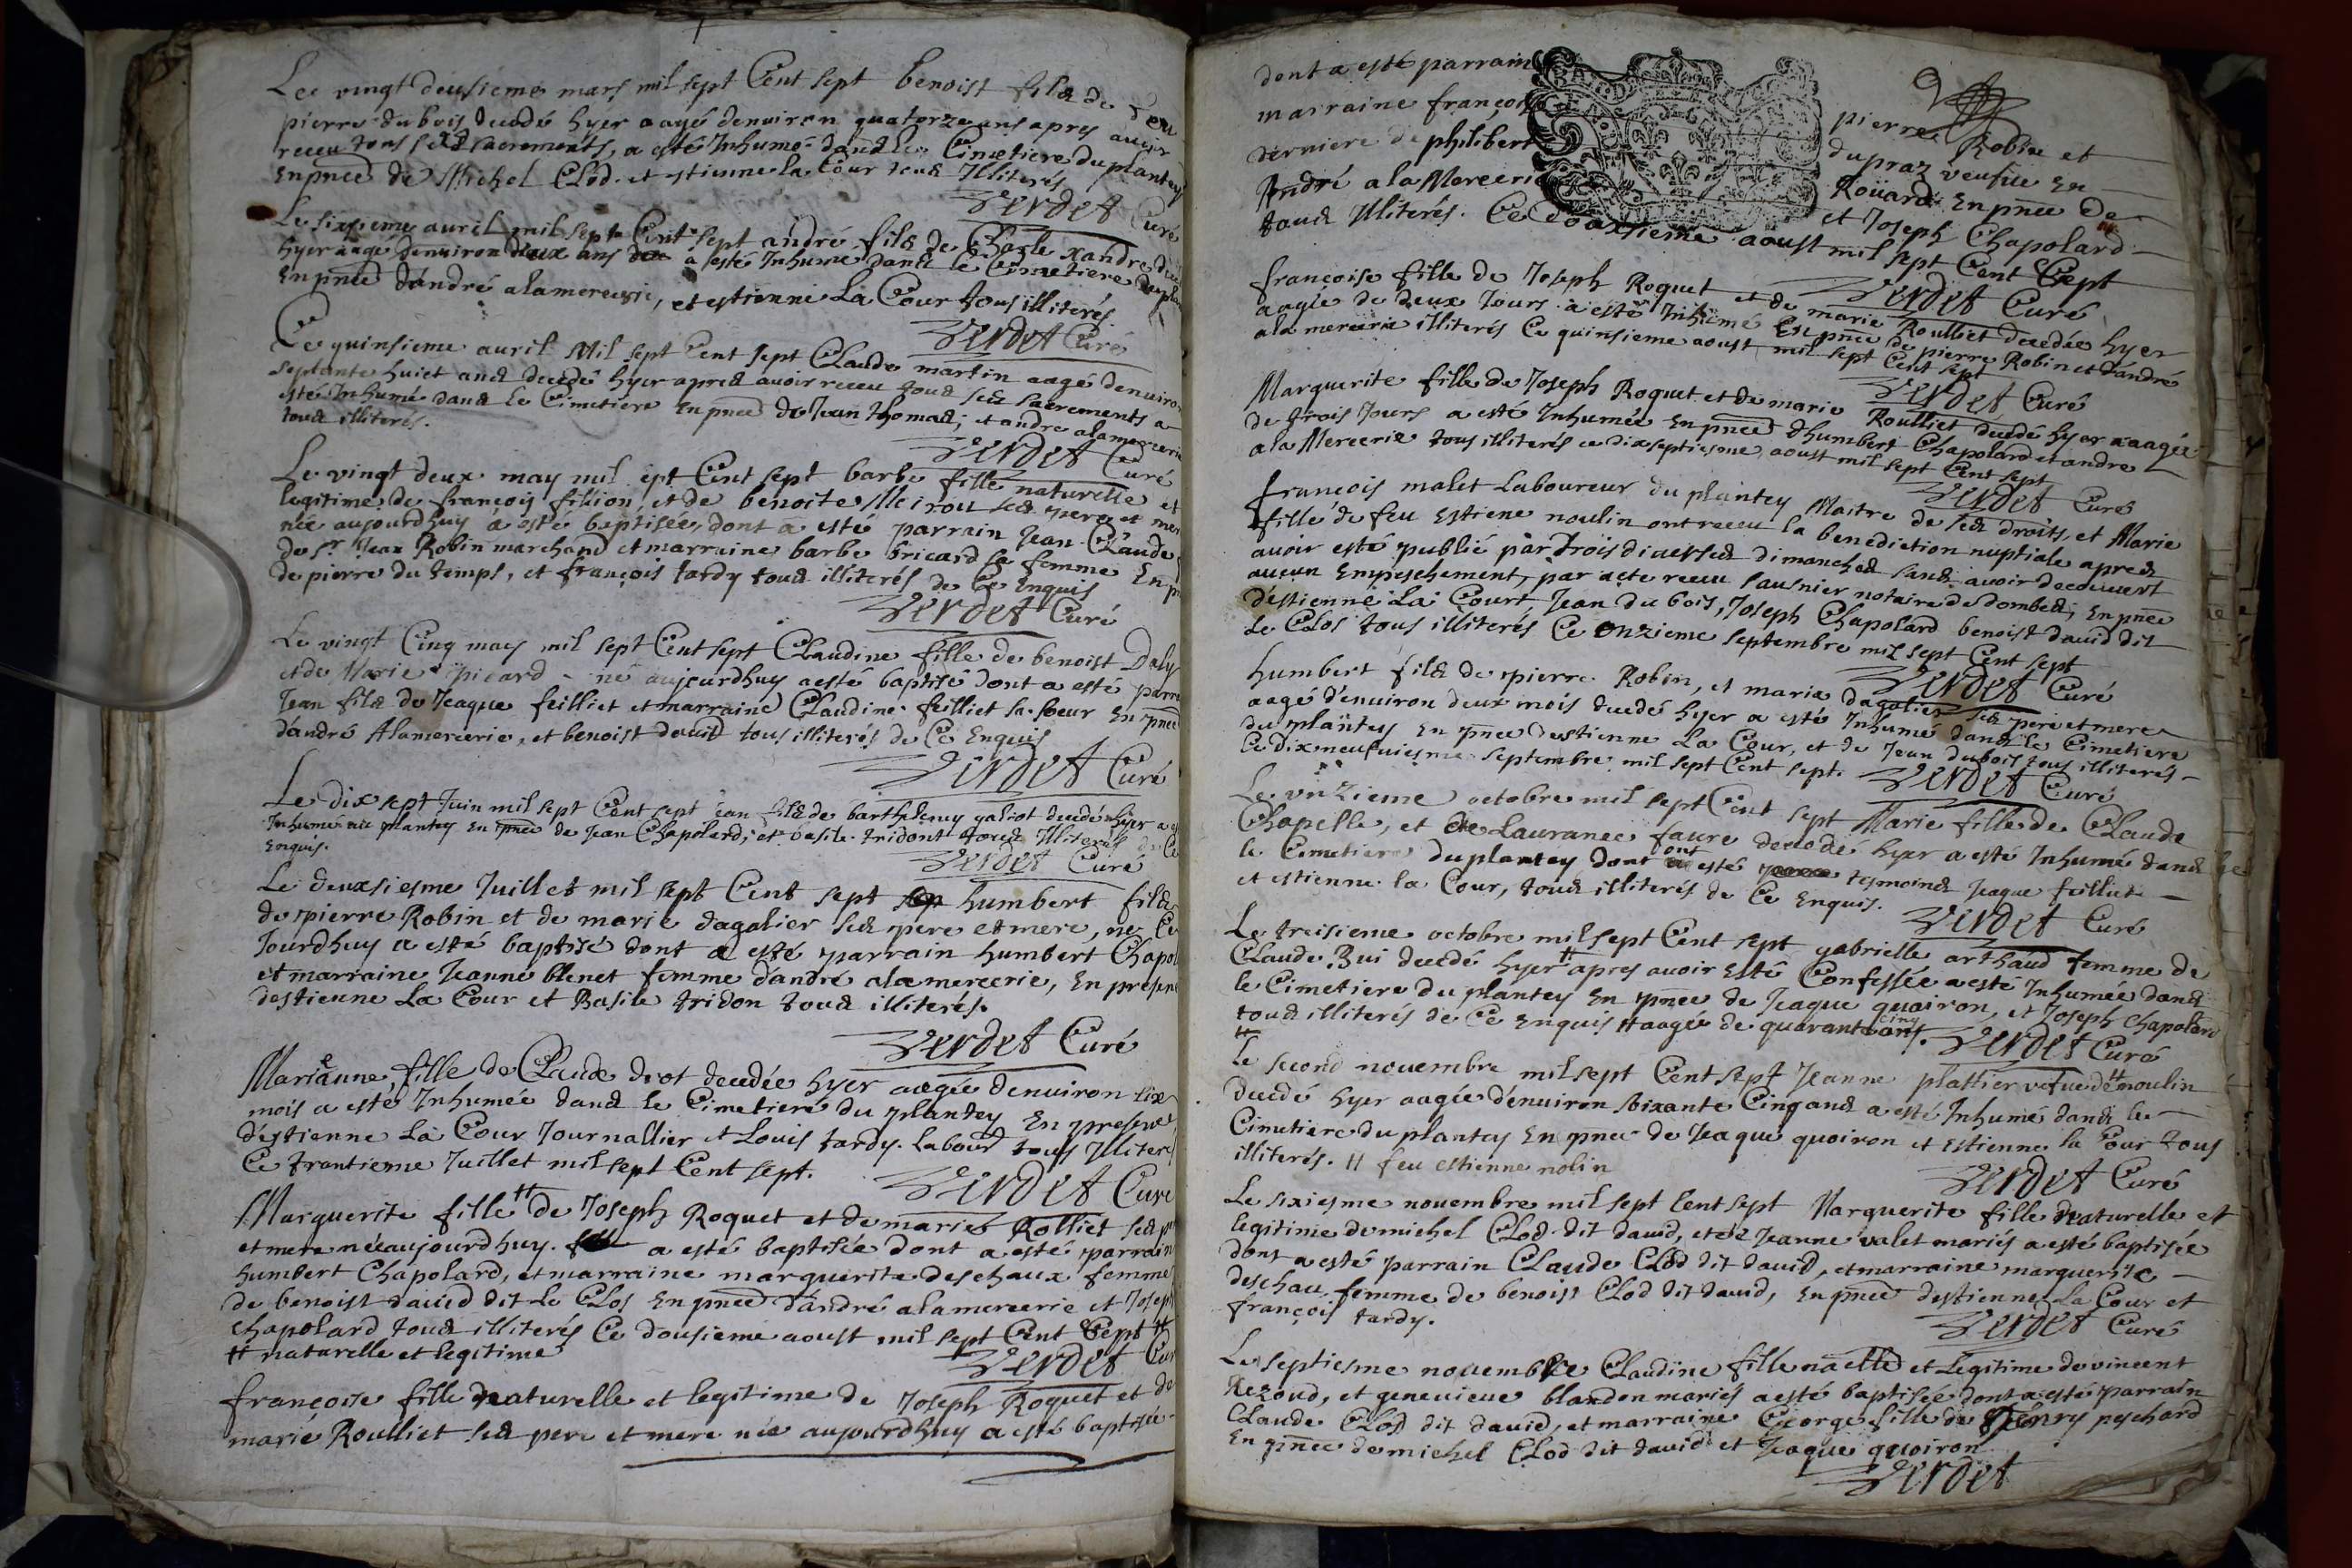 Le vingt deusieme mars mil sept Cent sept benoist fils de feu
pierre du bois decedé hyer aagé denuiron quatorze ans apres auoir
receu tous ses sacrements, a esté Inhumé dans le Cimetiere du plantey
En pnce de Michel Clod. et estienne la Cour tous Illiterés
Verdet Curé
Le sixsieme auril mil sept Cent sept andré fils de Charle xandre
hyer aagé denuiron deux ans a esté Inhumé dans le Cimetiere du
En pnce dandré alamercerie, et estienne La Cour tous illiterés
Verdet Curé
Ce quinsieme auril Mil sept Cent sept Claude martin aagé denuiron
septante huict ans decedé hyer apres auoir receu tous ses sacrements a
esté Inhumé dans le Cimetiere En pnce de Jean thomas; et andre alamercerie
tous illiterés.
Verdet Curé
Le vingt deux may mil sept Cent sept barbe fille naturelle et
legitime de françois fillion, et de benoite Meiron ses pere et mer
née aujourdhuy a esté baptisée, dont a esté parrain Jean Claude
de sr Jean Robin marchand et marraine barbe bricard sa femme En
de pierre du temps, et françois tardy tous illiterés de Ce Enquis
Verdet Curé
Le vingt Cinq may mil sept Cent sept Claudine fille de benoist Daly
et de Marie picard né aujourdhuy a esté baptisé dont a esté parra
Jean fils de Jeaque feilliet et marraine Claudine feilliet sa soeur En pnce
dandré Alamercerie, et benoist dauid tous illiterés de Ce Enquis
Verdet Curé
Le dix sept Juin mil sept Cent sept Jean fils de barthelemy galiot decedé hyer a
Inhumé au plantey En pnce de Jean Chapolard; et basile tridont tous Illiterés de Ce
Enquis.
Verdet Curé
Le deuxsiesme Juillet mil sept Cent sept humbert fils
de pierre Robin et de marie dagalier ses pere et mere, né Ce
Jourdhuy a esté baptisé dont a esté parrain humbert Chapol
et marraine Jeanne blenet femme dandré alamercerie, En presen
destienne La Cour et Basile tridon tous illiterés.
Verdet Curé
Marianne, fille de Claude drot decedée hyer aagée denuiron six
mois a esté Inhumée dans le Cimetiere du plantey En presence
destienne La Cour Journallier et Louis tardy labourd tous Illiter
Ce trantieme Juillet mil sept Cent sept.
Verdet Curé
Marguerite fille # de Joseph Roquet et de marie Rolliet ses p
et mere née aujourdhuy. a esté baptisée dont a esté parrain
humbert Chapolard, et marraine marguerite deschaux femme
de benoist dauid dit Le Clos En pnce dandré alamercerie et Josep
Chapolard tous illiterés Ce dousieme aoust mil sept Cent Sept #
# naturelle et legitime
Verdet Cur
françoise fille naturelle et legitime de Joseph Roquet et de
marie Roulliet ses pere et mere née aujourdhuy a esté baptisée
dont a esté parrain pierre Robin et
marraine françoise dupraz veufue En
derniere de philibert Roüard En pnce de
André a la Mercerie et Joseph Chapolard
tous Illiterés. Ce doaxsieme aoust mil sept Cent Sept
Verdet Curé
françoise fille de Joseph Roquet et de marie Roulliet decedée hyer
aagée de deux Jours a esté Inhumé En pnce de pierre Robin et dandré
a la mercerie illiterés Ce quinsieme aoust mil sept Cent sept
Verdet Curé
Marguerite fille de Joseph Roquet et de marie Roulliet decedé hyer aaagée
de trois Jours a esté Inhumée En pnce dhumbert Chapolard et andre
a la Mercerie tous illiterés ce dix septiesme aoust mil sept Cent sept
Verdet Curé
françois malet Laboureur du plantey Maitre de ses droits, et Marie
fille de feu Estiene noulin ont receu la benediction nuptiale apres
auoir esté publié par trois diuerses dimanches sans auoir decouuert
aucun Empeschement, par acte receu saunier notaire de dombes; En pnce
destienne La Court, Jean du bois, Joseph Chapolard benoist dauid dit
le Clos tous illiterés Ce onzieme septembre mil sept Cent sept
Verdet Curé
humbert fils de pierre Robin, et marie dagalier ses pere et mere
aagé denuiron deux mois decedé hyer a esté Inhumé dans le Cimetiere
du plantey En pnce destienne La Cour, et de Jean dubois tous illiterés
Ce dixneufuiesme septembre mil sept Cent sept.
Verdet Curé
Le vnzieme octobre mil sept Cent sept Marie fille de Claude
Chapelle, et de Laurance faure decedé hyer a esté Inhumé dans
le Cimetiere du plantey dont ont esté tesmoins Jeaque feilliet
et estienne la Cour, tous illiterés de Ce Enquis.
Verdet Curé
Le treisieme octobre mil sept Cent sept gabrielle arthaud femme de
Claude Bui decedé hyer # apres auoir Esté Confessée a esté Inhumée dans
le Cimetiere du plantey En pnce de Jeaque quoiron, et Joseph Chapolard
tous illiterés de Ce Enquis # aagée de quarante cinq ans.
Verdet Curé
Le second nouembre mil sept Cent sept Jeanne plattier vefue de # moulin
decedé hyer aagée denuiron soixante Cinq ans a esté Inhumé dans le
Cimetiere du plantey En pnce de Jeaque quoiron et Estienne la Cour tous
illiterés. # feu estienne nolin
Verdet Curé
Le sixiesme nouembre mil sept Cent sept Marguerite fille naturelle et
legitime de michel Clod dit dauid, et de Jeanne valet mariés a esté baptisée
dont a esté parrain Claude Clod dit dauid, et marraine marguerite
deschau femme de benoist Clod dit dauid, En pnce destienne La Cour et
françois tardy.
Verdet Curé
Le septiesme nouembre Claudine fille naelle et Legitime de vincent
Rezoud, et geneuieue blandon mariés a esté baptisée dont a esté parrain
Claude Clod dit dauid, et marraine George fille de henry pechard
En pnce de michel Clod dit dauid et Jeaque quoiron
Verdet